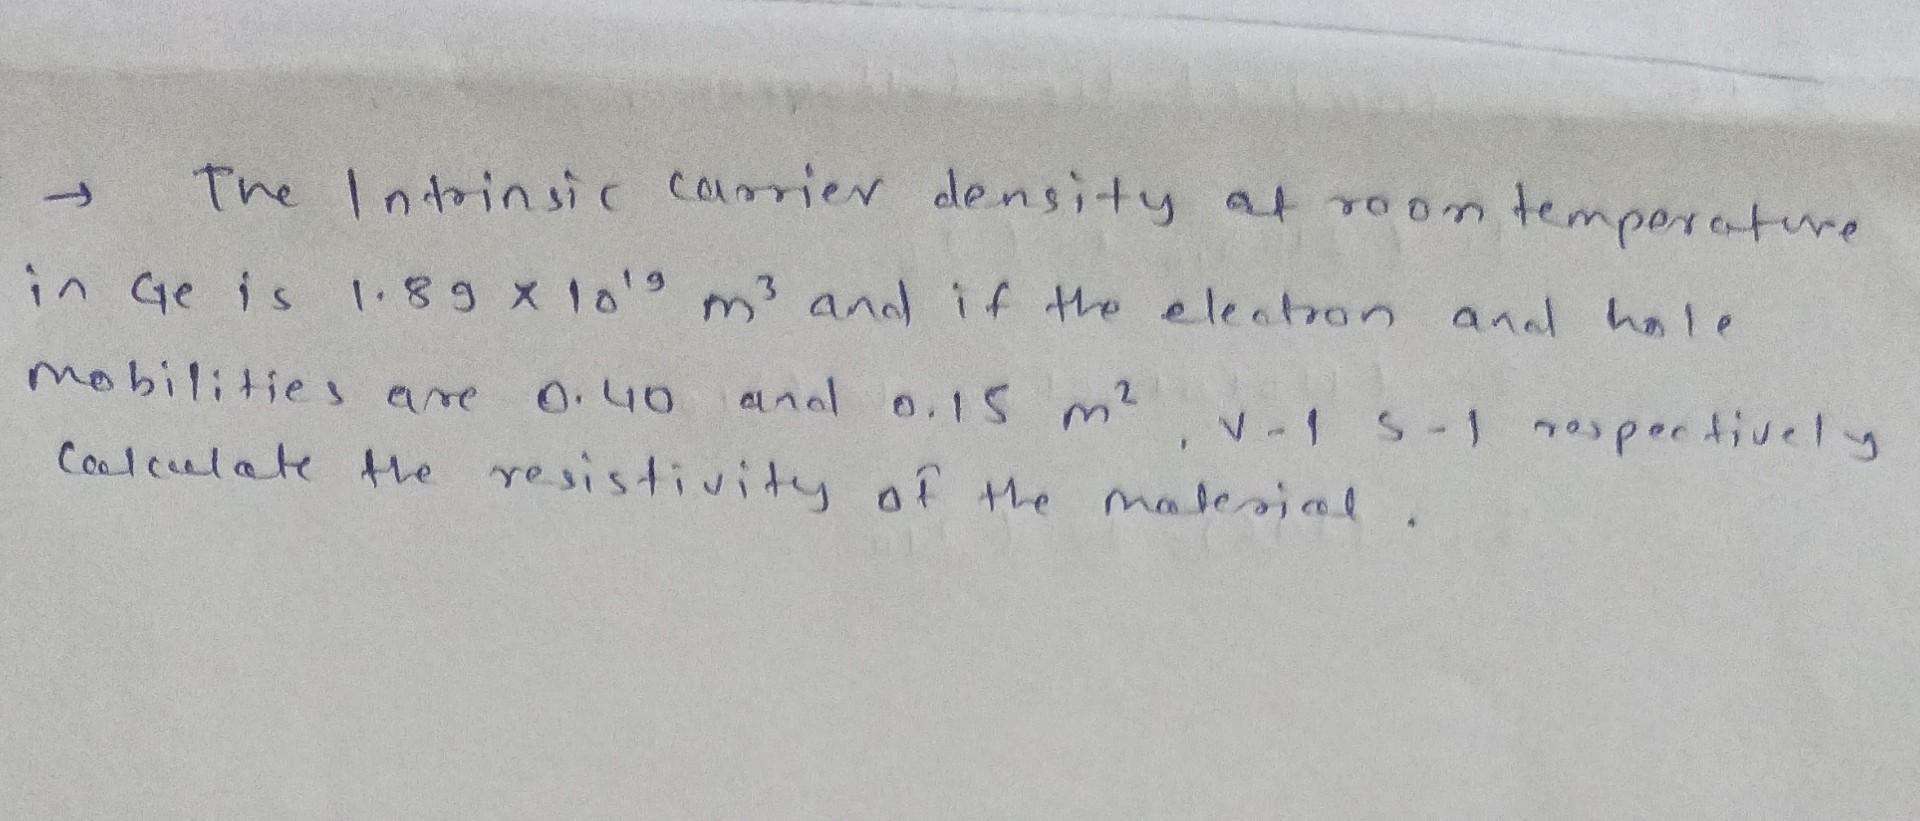 → The Intrinsic carrier density at room temperature
in Ge is 1.89 x 10¹⁹ m³ and if the electron and hole
mobilities are 0.40 and 0.15 m², v-1 s-1 respectively
Calculate the resistivity of the material.